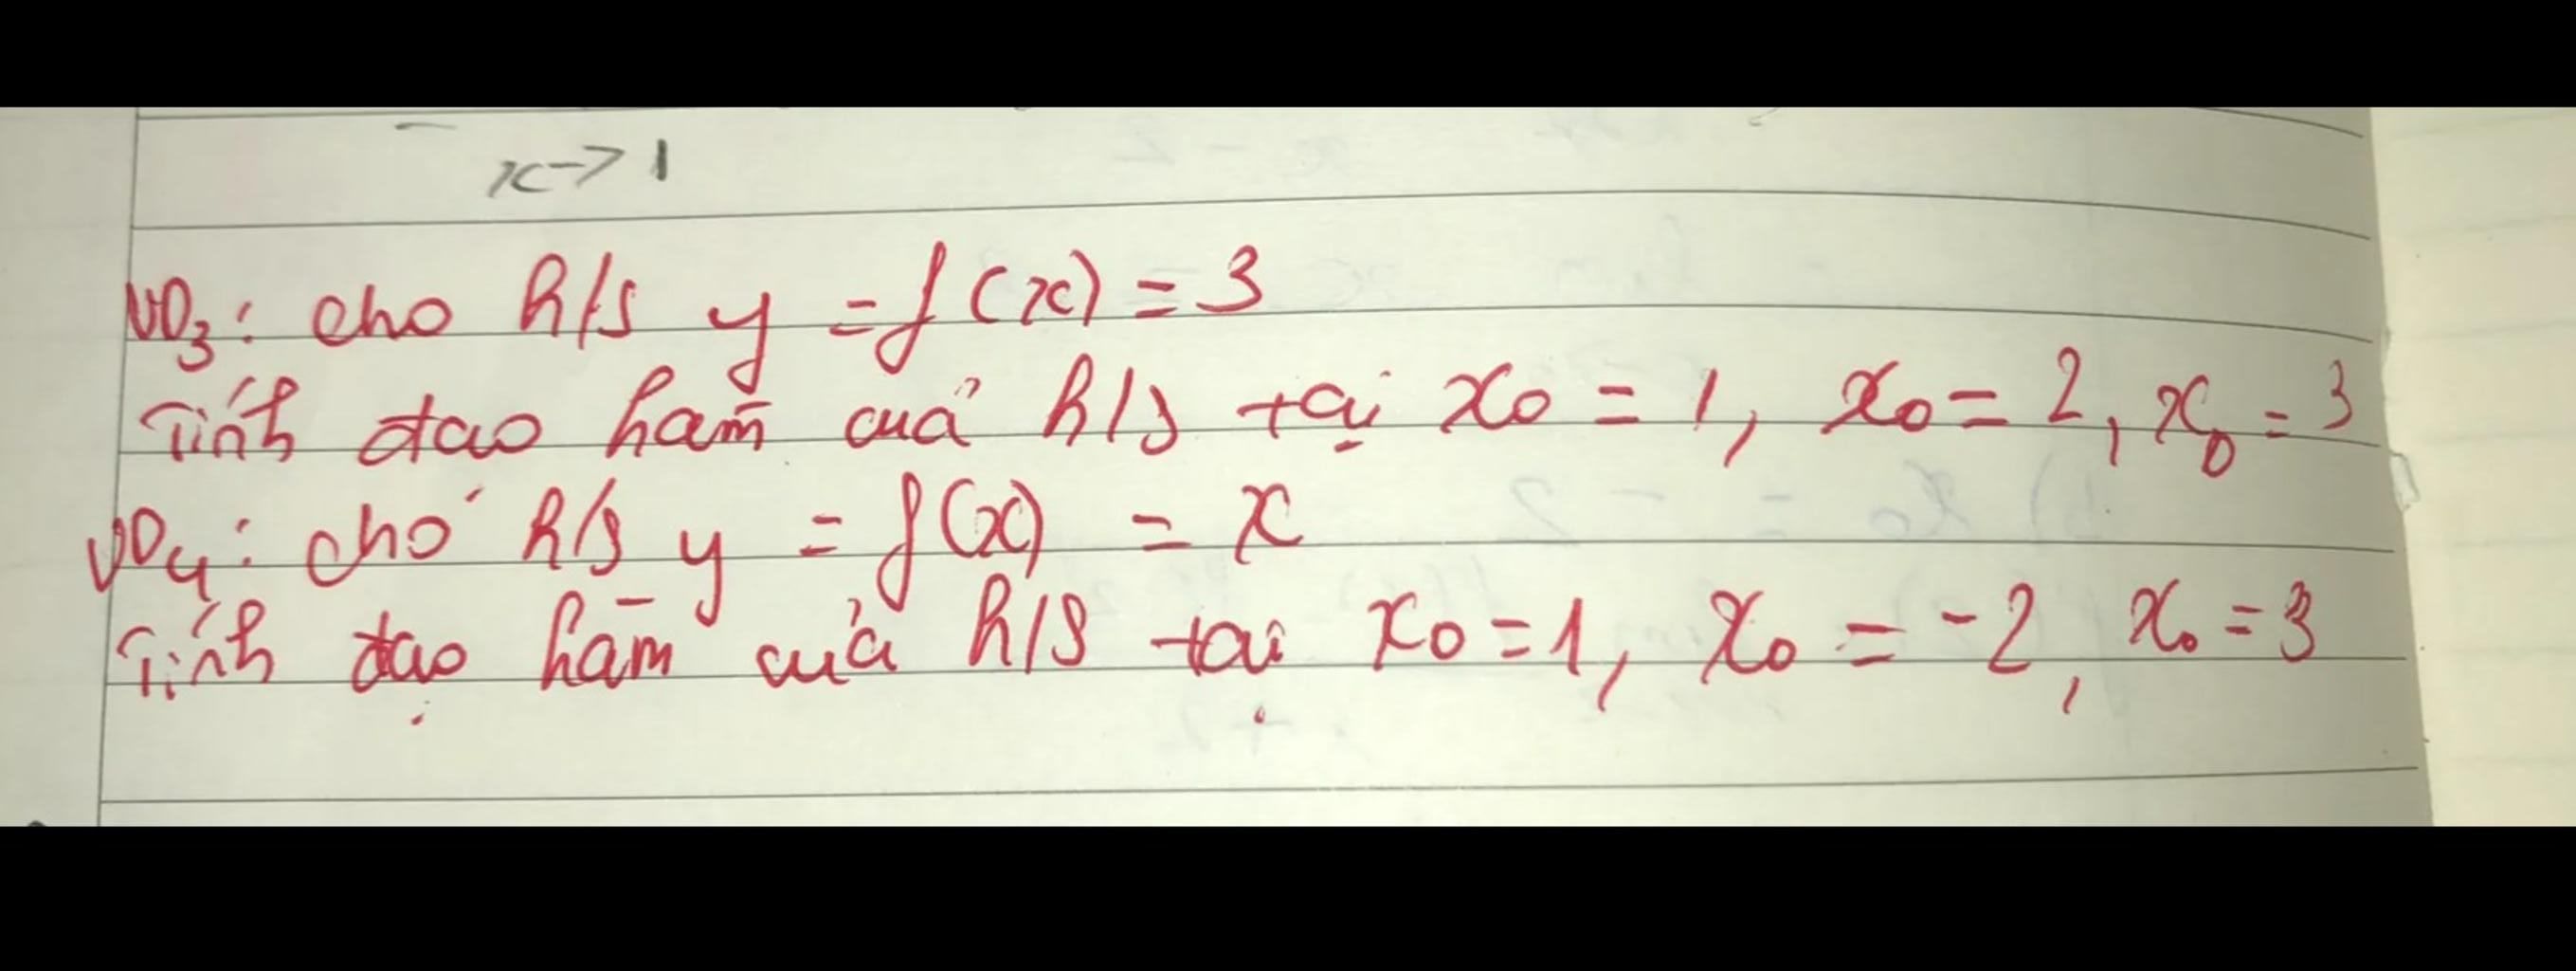 x->1
VD3: cho h/s y = f(x) = 3
Tính đao ham̄ cuả h/s tại x0 = 1, x0 = 2, x0 = 3
VD4: cho h/s y = f(x) = x
Tính đạo hàm của h/s tại x0 = 1, x0 = -2, x0 = 3